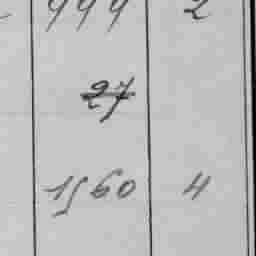 999 2
27
1560 4